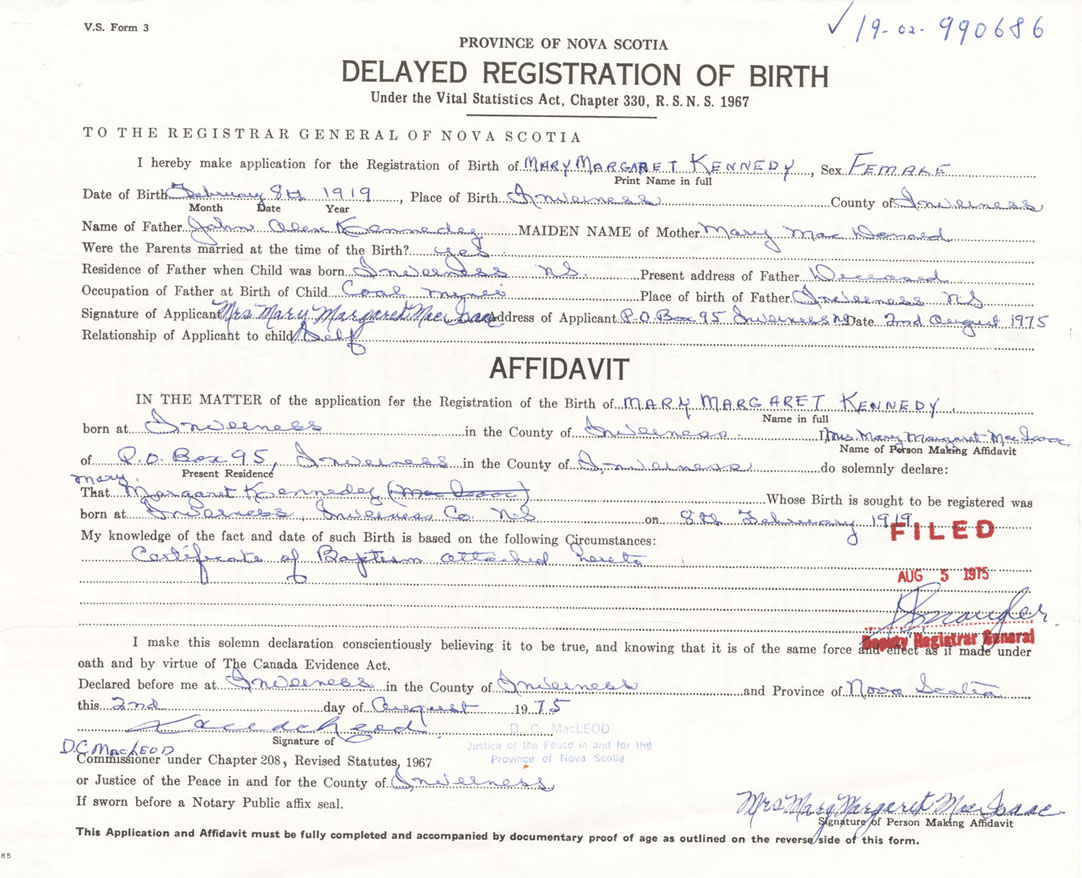 V.S. Form 3
✓ 19-02-990686
PROVINCE OF NOVA SCOTIA
DELAYED REGISTRATION OF BIRTH
Under the Vital Statistics Act, Chapter 330, R.S.N.S. 1967
TO THE REGISTRAR GENERAL OF NOVA SCOTIA
I hereby make application for the Registration of Birth of MARY MARGARET KENNEDY, Sex FEMALE
Print Name in full
Date of Birth February 8th 1919, Place of Birth Inverness County of Inverness
Month Date Year
Name of Father John Alex Kennedy MAIDEN NAME of Mother Mary Mac Donald
Were the Parents married at the time of the Birth? yes
Residence of Father when Child was born Inverness NS. Present address of Father Deceased
Occupation of Father at Birth of Child Coal miner Place of birth of Father Inverness NS
Signature of Applicant Mrs Mary Margaret Mac Isaac Address of Applicant P.O. Box 95 Inverness NS Date 2nd August 1975
Relationship of Applicant to child Self
AFFIDAVIT
IN THE MATTER of the application for the Registration of the Birth of MARY MARGARET KENNEDY
Name in full
born at Inverness in the County of Inverness I, Mrs. Mary Margaret Mac Isaac
Name of Person Making Affidavit
of P.O. Box 95, Inverness in the County of Inverness do solemnly declare:
Present Residence
Mary
That Margaret Kennedy (Mac Isaac) Whose Birth is sought to be registered was
born at Inverness, Inverness Co. NS on 8th February 1919
FILED
My knowledge of the fact and date of such Birth is based on the following Circumstances:
Certificate of Baptism attached hereto
AUG 5 1975
Deputy Registrar General
I make this solemn declaration conscientiously believing it to be true, and knowing that it is of the same force and effect as if made under
oath and by virtue of The Canada Evidence Act.
Declared before me at Inverness in the County of Inverness and Province of Nova Scotia
this 2nd day of August 1975
D. C. MacLEOD
Signature of
Justice of the Peace in and for the
Province of Nova Scotia
D.C. MacLEOD
Commissioner under Chapter 208, Revised Statutes, 1967
or Justice of the Peace in and for the County of Inverness
If sworn before a Notary Public affix seal.
Mrs Mary Margaret Mac Isaac
Signature of Person Making Affidavit
This Application and Affidavit must be fully completed and accompanied by documentary proof of age as outlined on the reverse side of this form.
85